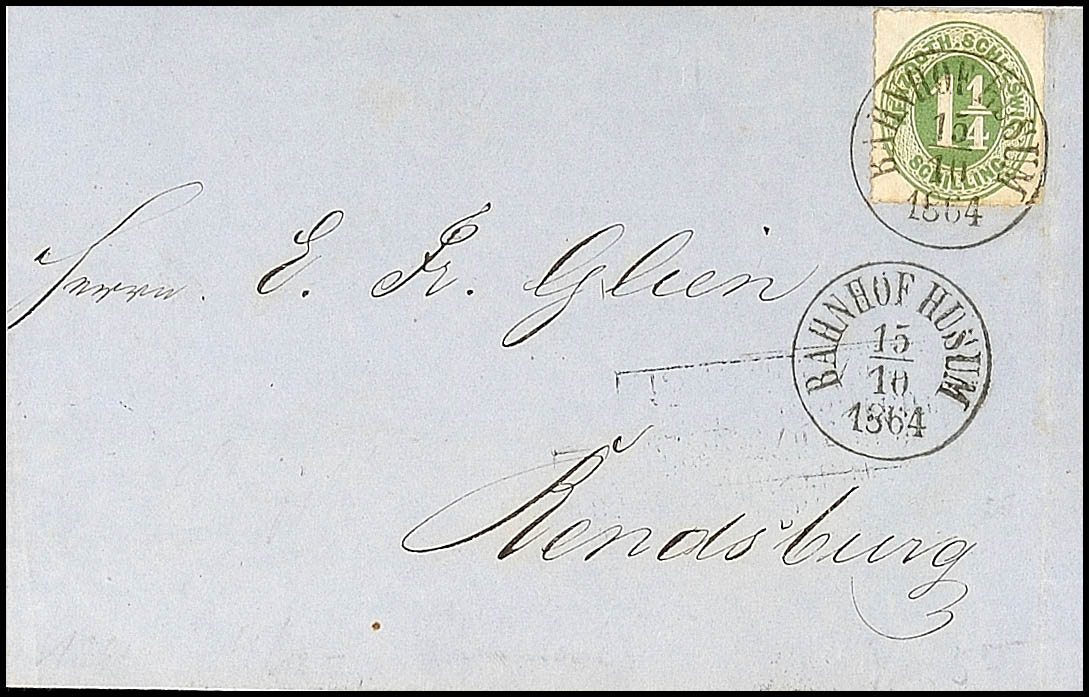 HERZOGTH. SCHLESWIG
1 1/4
SCHILLING
BAHNHOF HUSUM
15
10
1864
Herrn. E. Fr. Glien
BAHNHOF HUSUM
15
10
1864
Rendsburg